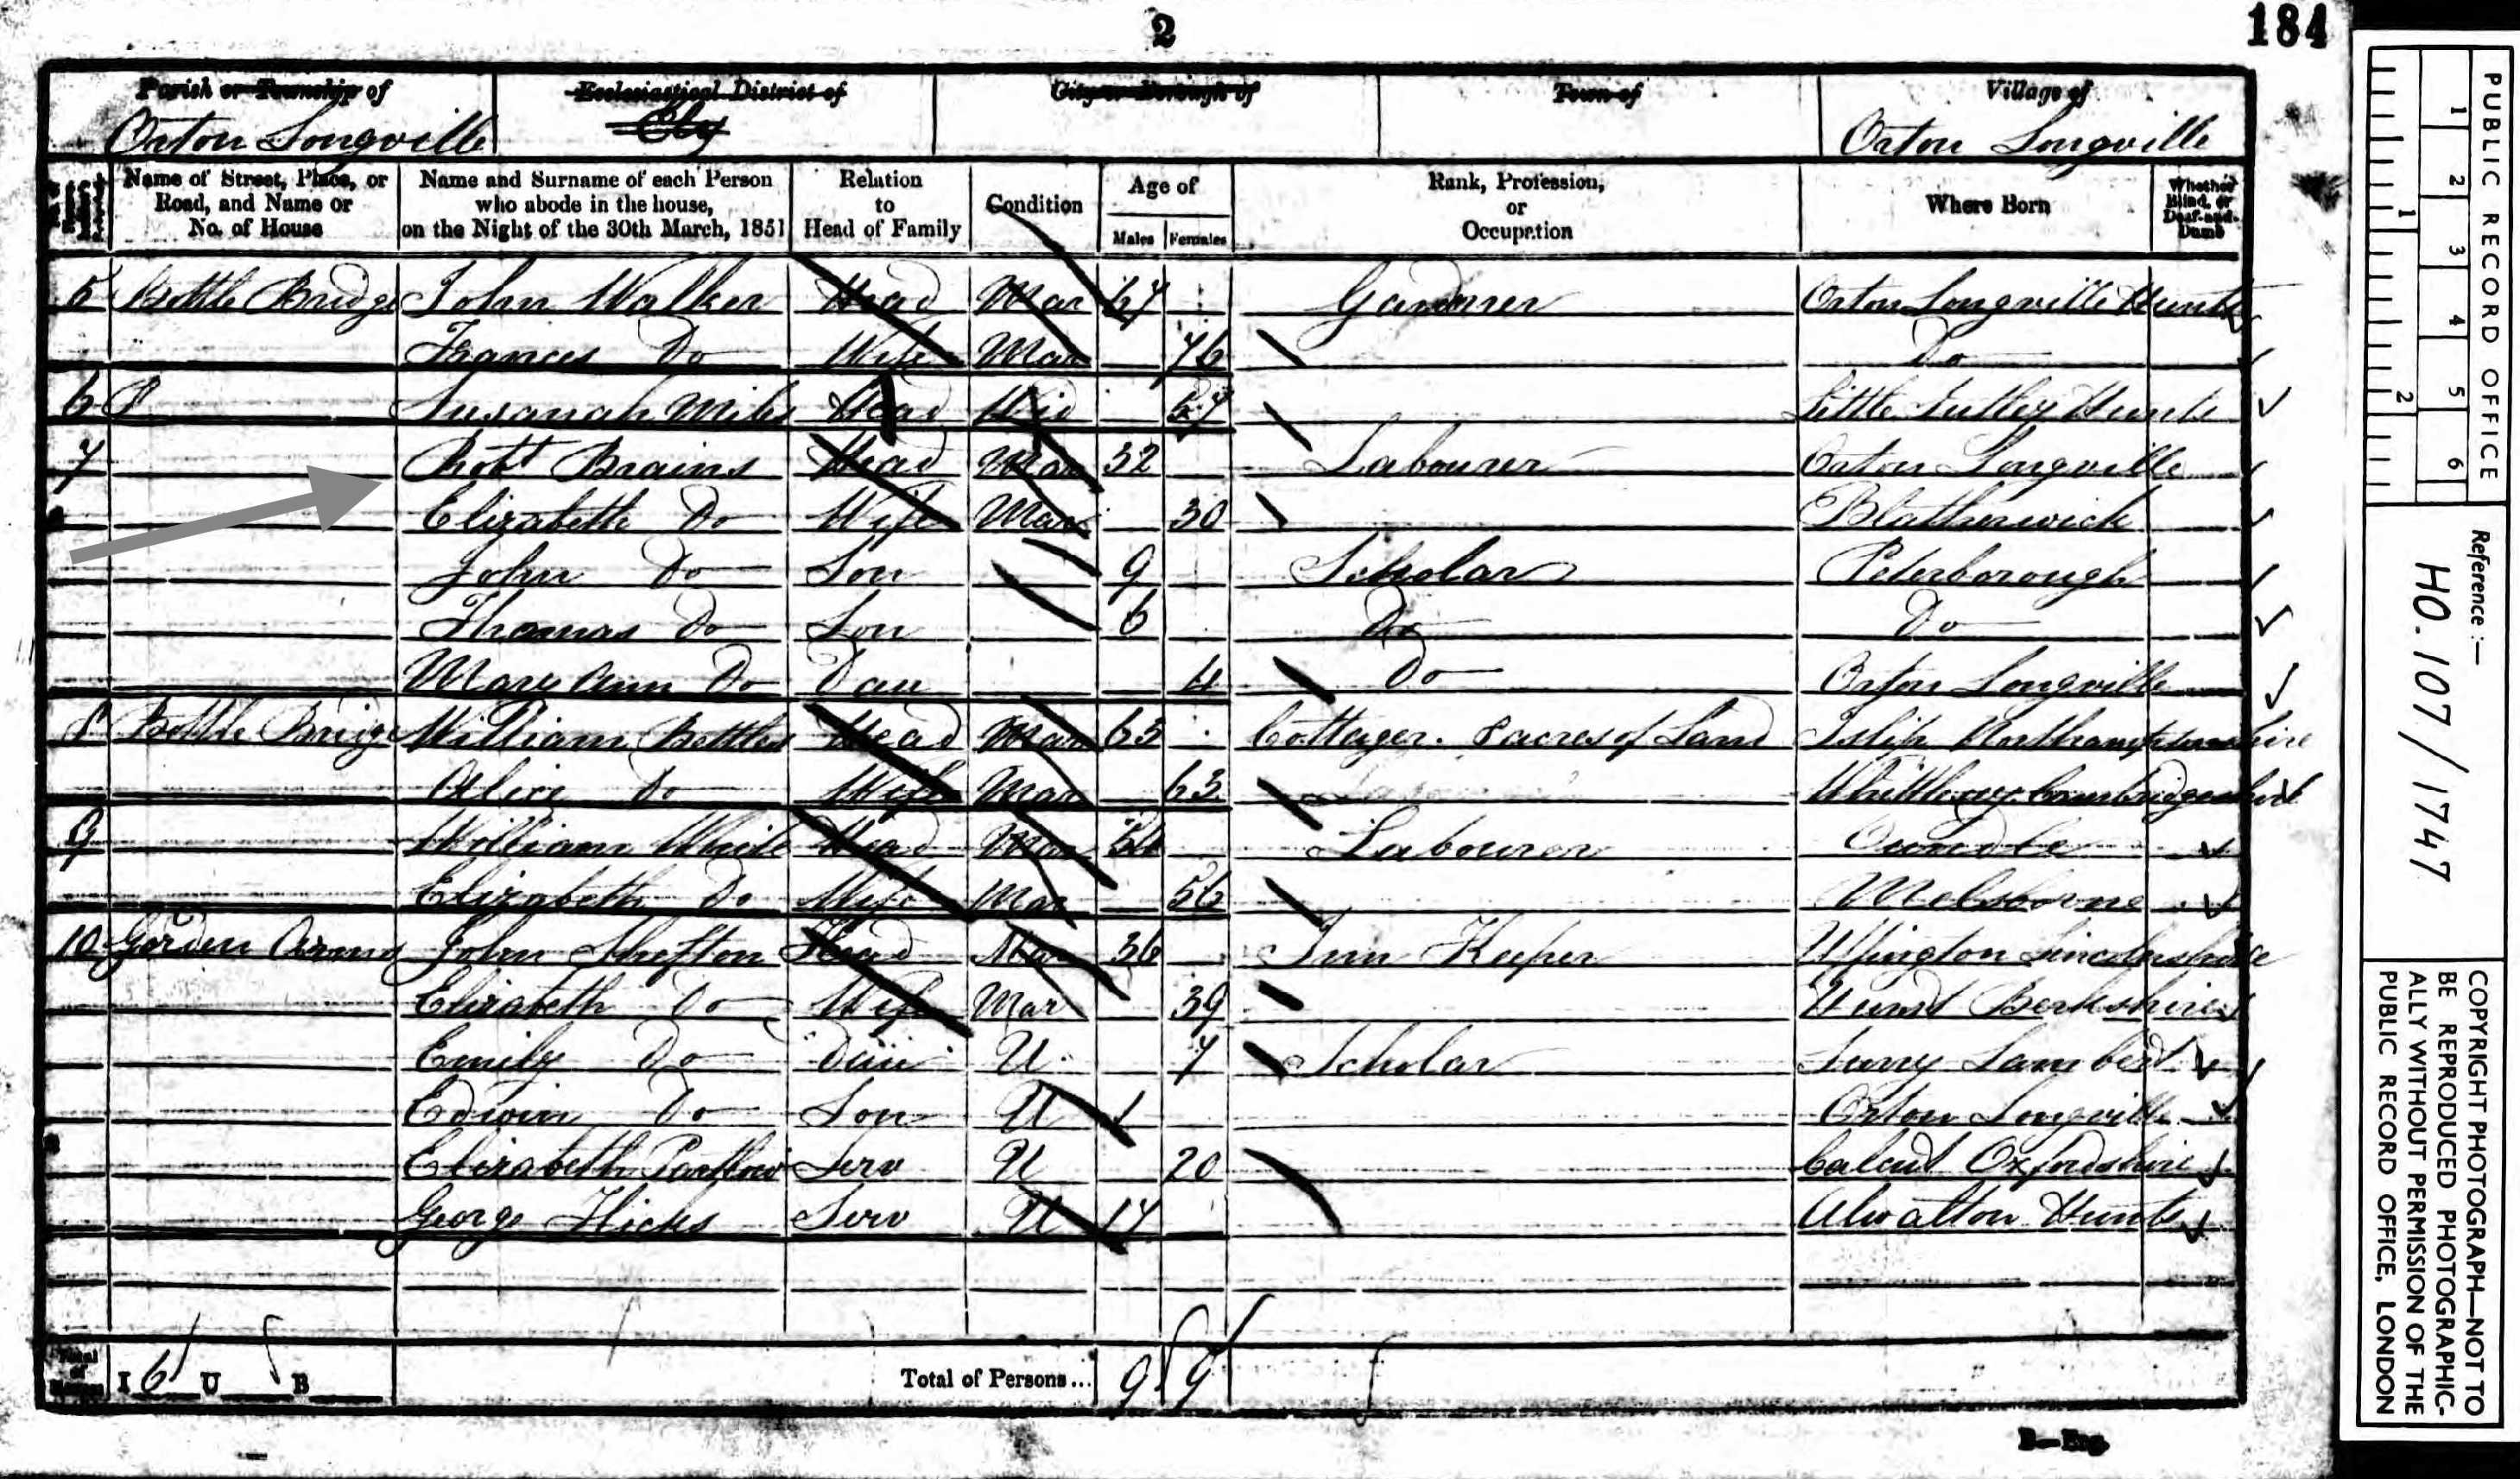 2
184
Parish or Township of
Ecclesiastical District of
City or Borough of
Town of
Village of
Orton Longville
Ely
Orton Longville
Name of Street, Place, or Road, and Name or No. of House
Name and Surname of each Person who abode in the house, on the Night of the 30th March, 1851
Relation to Head of Family
Condition
Age of
Males Females
Rank, Profession, or Occupation
Where Born
Whether Blind, or Deaf-and-Dumb
5 Bottle Bridge John Walker Head Mar 67 Gardner Orton Longville Hunts
Frances Do Wife Mar 76 Do
6 Susanah Miles Head Wid Little Hunts
7 Robt Brains Head Mar 32 Labourer Orton Longville
Elizabeth Do Wife Mar 30 Blatherwick
John Do Son 9 Scholar Peterborough
Thomas Do Son 6 Do Do
Mary Ann Do Dau 4 Do Orton Longville
8 Bottle Bridge William Bottles Head Mar 65 Cottager. acres of Land Islip Northamptonshire
Alice Do Wife Mar 63 Whittlesey Cambridgeshire
9 William White Head Mar Labourer Oundle
Elizabeth Do Wife Mar 56
10 Gorden Arms John Shefton Head Mar 36 Inn Keeper Uffington Lincolnshire
Elizabeth Do Wife Mar 39 Hurst Berkshire
Emily Do Dau U 7 Scholar Surry Lambert
Edwin Do Son U 1 Orton Longville
Elizabeth Serv U 20 Oxfordshire
George Hicks Serv U 17 Alwalton Hunts
Total of Houses I 6 U B Total of Persons... 9 9
B—Eng.
PUBLIC RECORD OFFICE
1 2 3 4 5 6
1 2
Reference:—
HO. 107 / 1747
COPYRIGHT PHOTOGRAPH—NOT TO
BE REPRODUCED PHOTOGRAPHIC-
ALLY WITHOUT PERMISSION OF THE
PUBLIC RECORD OFFICE, LONDON